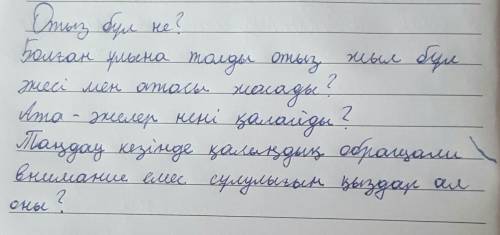 Отыз бұл не?
Болған ұлына толды отыз жыл бұл
әжесі мен атасы жасады?
Ата - әжелер нені қалайды?
Таңдау кезінде қалыңдық обращали
внимание емес сұлулығын қыздар ал
оны?